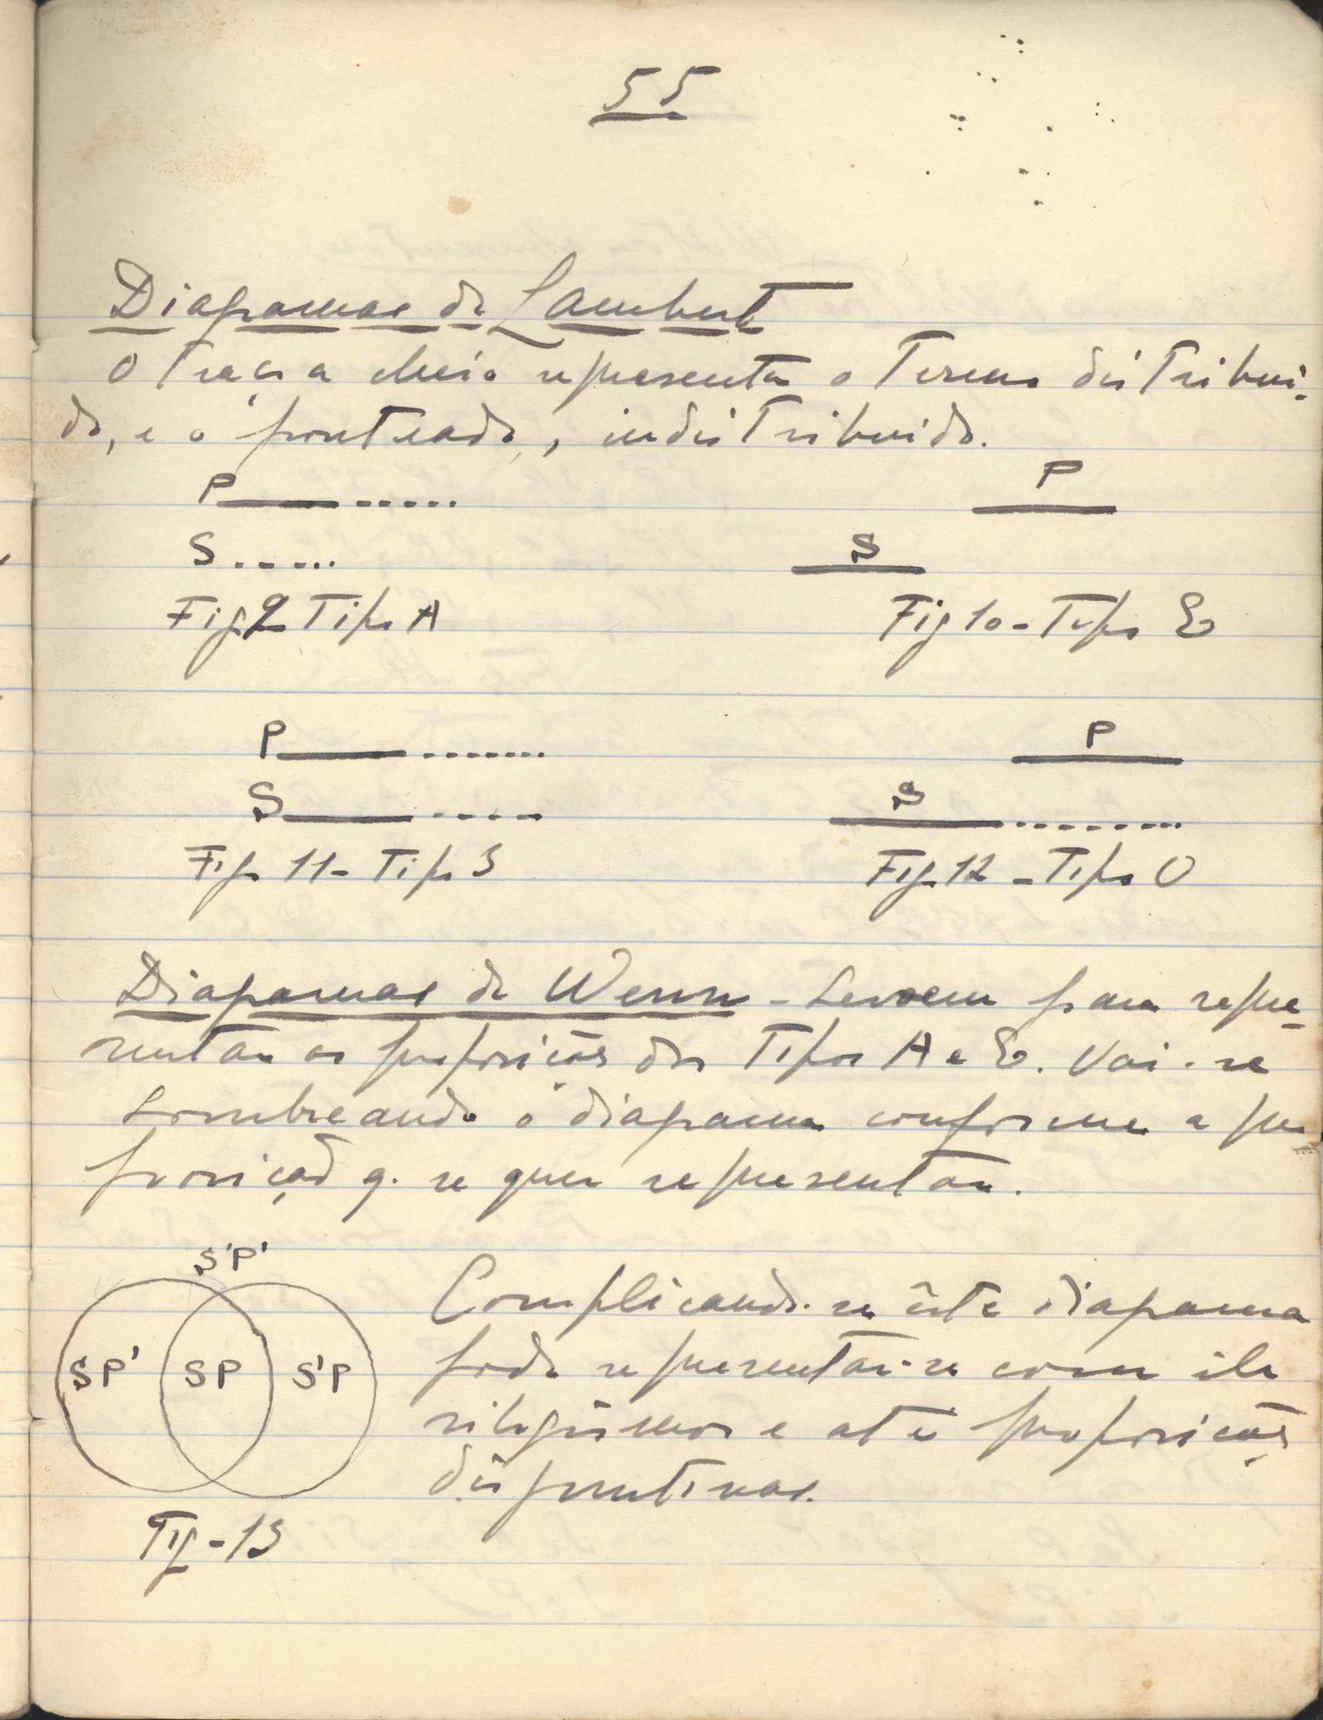 55
Diagramas de Lambert
O traço cheio representa o termo distribui-
do, e o ponteado, indistribuido.
P P
S S
Fig 9 Tipo A Fig 10 - Tipo E
P P
S S
Fig 11 - Tipo I Fig 12 - Tipo O
Diagramas de Wenn - Servem para repre-
sentar as proposições dos Tipos A e E. Vai-se
sombreando o diagrama conforme a pro
posição q. se quer representar.
S'P'
SP' SP S'P
Fig - 13
Complicando-se êste diagrama
pode representar-se com ele
silogismos e até proposições
disjuntivas.